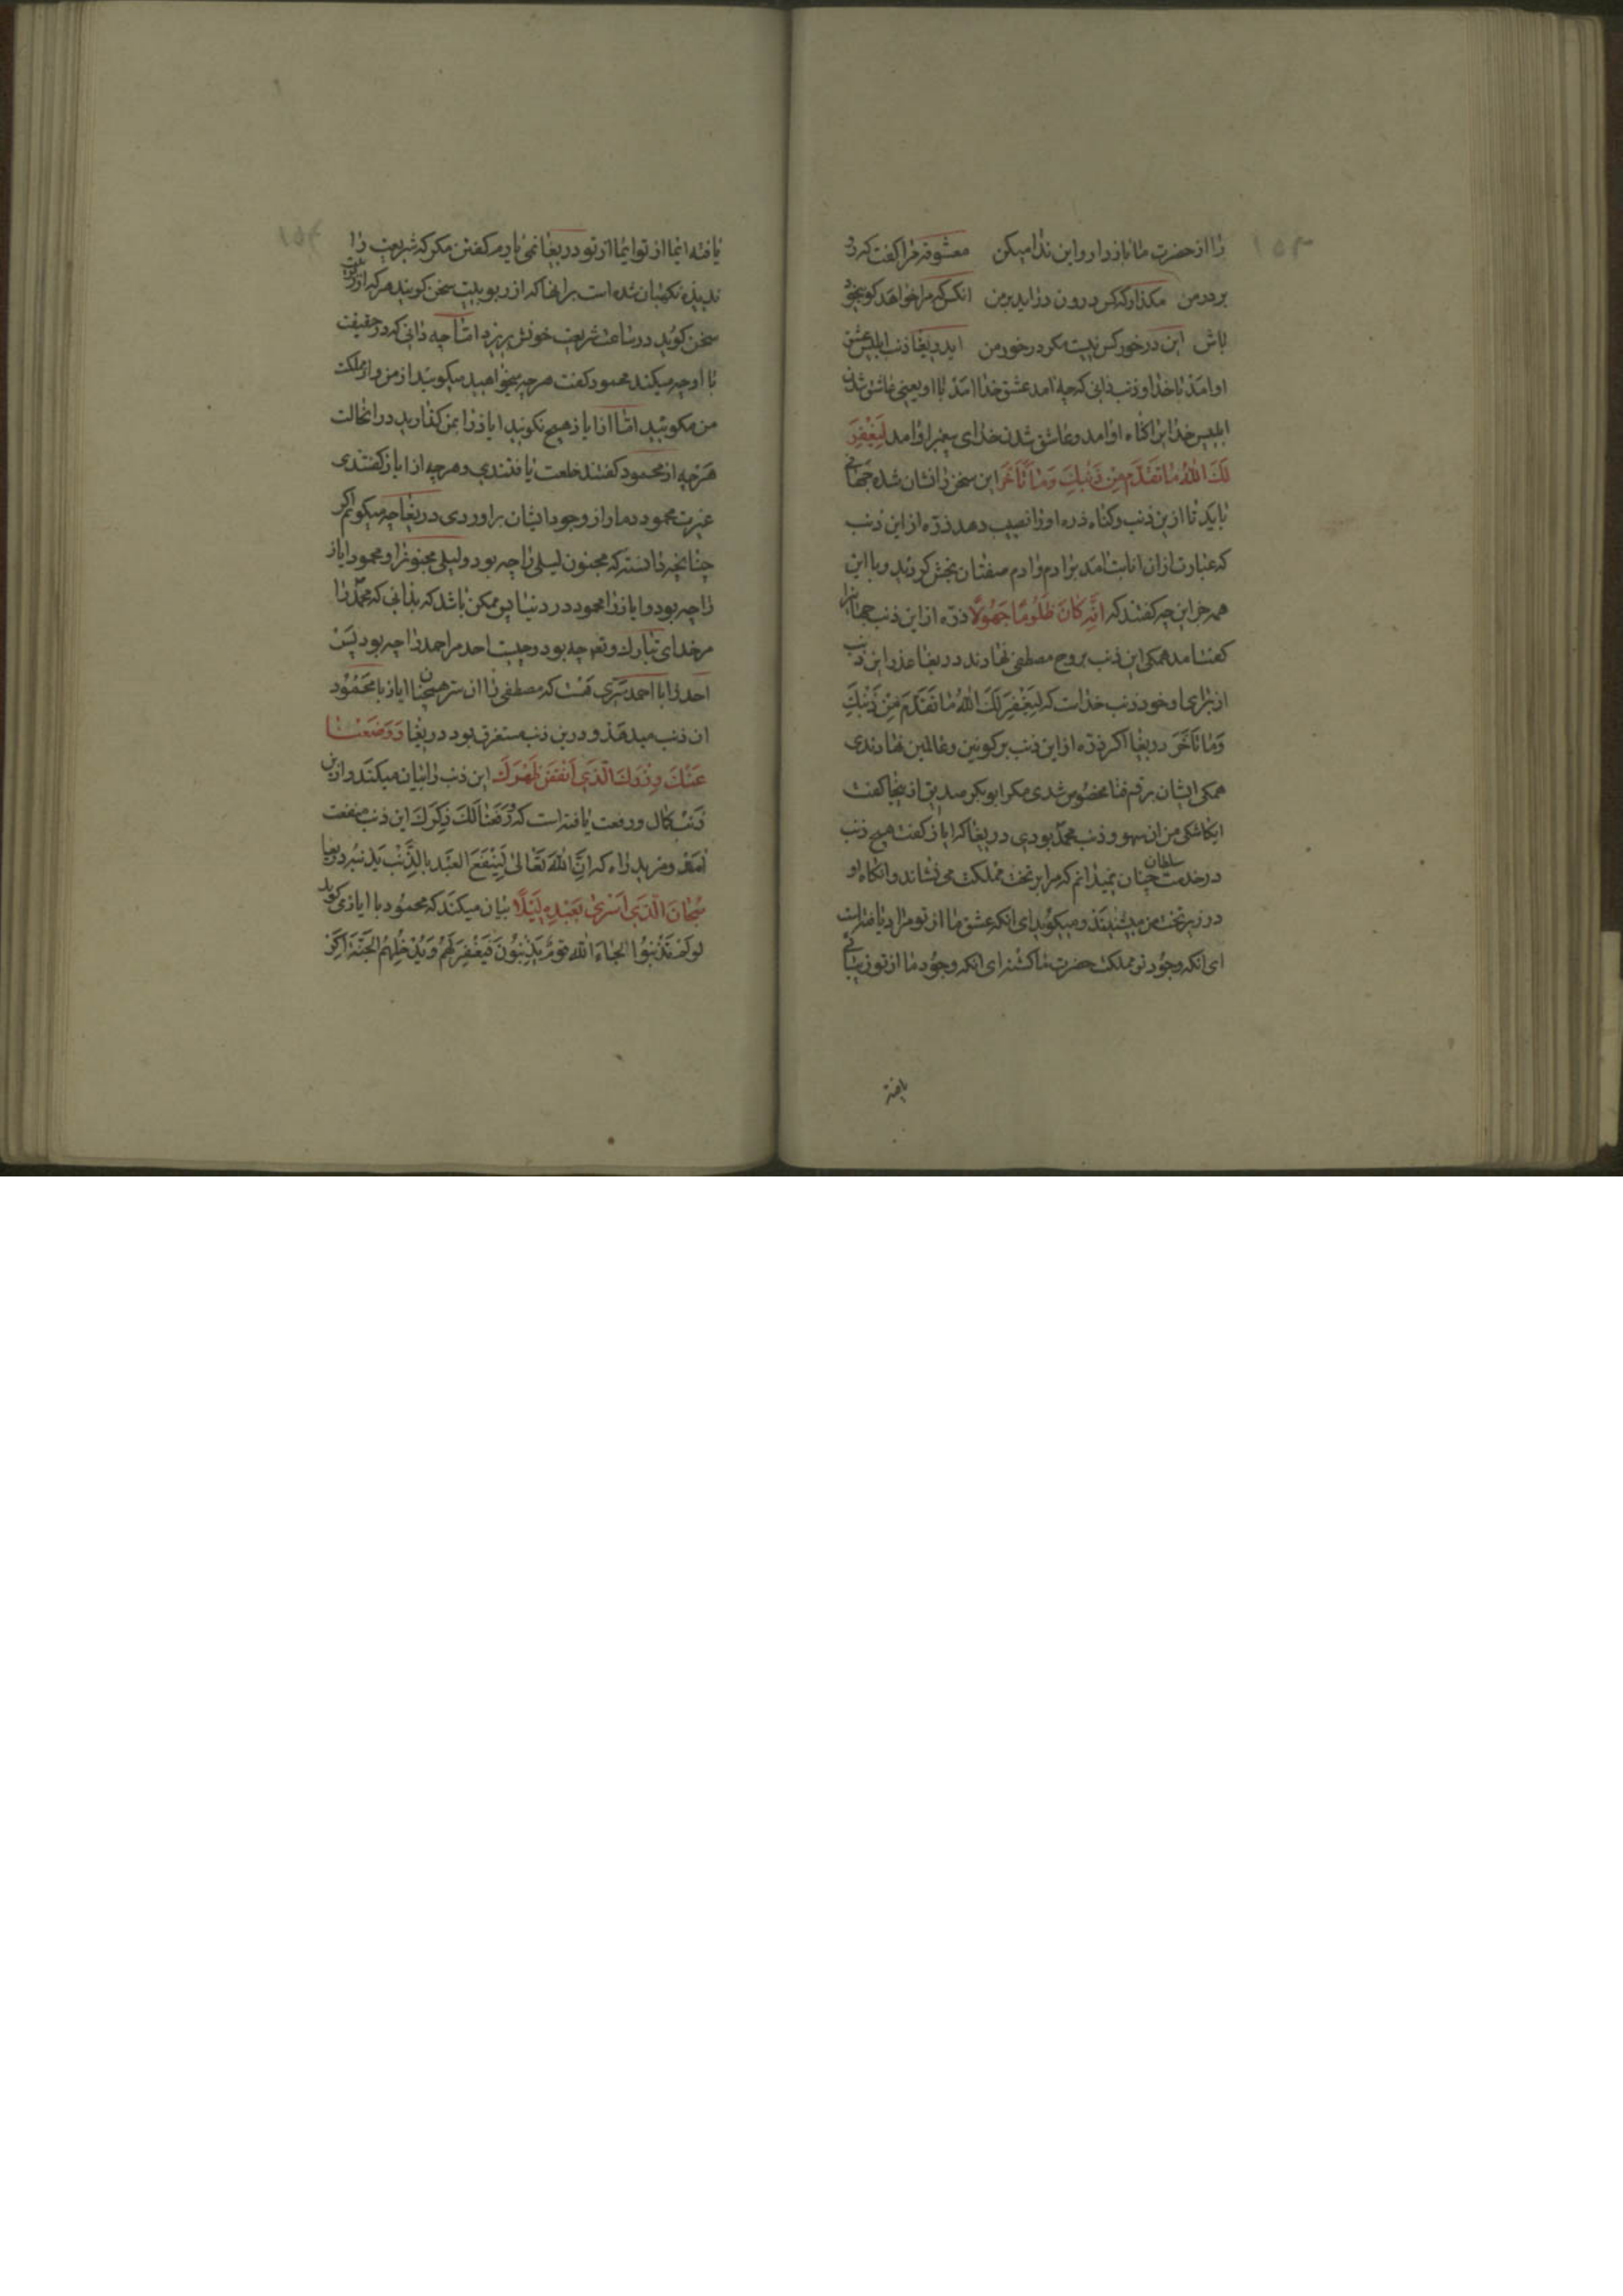 ۱۵۳
را از حضرت ما باز دار و این ندا میکن معشوقه مرا گفت که رو
بر در من مکذار که کس درون در اید بر من انکس که مرا خواهد کو بیخود
باش این در خور کس نیست مکر در خور من ای دریغا ذنب ابلیس عشق
او امذ با خدا و ذنب دانی که چه امد عشق خدا امذ با او یعنی عاشق شدن
ابلیس خدایرا کناه او امد و عاشق شدن خدای پیغمبر او امد لِیَغْفِرَ
لَكَ اللّٰهُ مَا تَقَدَّمَ مِنْ ذَنْبِكَ وَمَا تَاَخَّرَ این سخن را نشان شده جهانی
باید تا از ین ذنب و کناه ذره او را نصیب دهد ذره از این ذنب
که عبارت از ان امانت امد بر ادم و ادم صفتان بخش کردند و با این
همه جز این چه کفتند که اِنَّهُ كَانَ ظَلُومًا جَهُولًا ذره از این ذنب جهانیانرا
کفت امد همکی این ذنب بر روح مصطفی نهادند دریغا عذر این ذنب
از برای او خود ذنب خداست که لِیَغْفِرَ لَكَ اللّٰهُ مَا تَقَدَّمَ مِنْ ذَنْبِكَ
وَمَا تَاَخَّرَ دریغا اکر ذره از این ذنب بر کونین و عالمین نهادندی
همکی ایشان برقم فنا مخصوص شدی مکر ابوبکر صدیق از ینجا کفت
ایکاشکی من ان سهو و ذنب محمد بودی دریغا که ایاز کفت هیچ ذنب
در خدمت سلطان چنان نمیدانم که مرا بر تخت مملکت می نشاند و انکاه او
در زیر تخت من می نشیند و میکوید ای انکه عشق ما از تو مراد یافته است
ای انکه وجود تو مملکت حضرت ما کشته ای انکه وجود ما از تو زیبائی
یافته
۱۵۴
یافته ای ما از تو ای ما از تو دریغا نمی یارم کفتن مکر که شریعت را
ندیدۀ نکهبان شده است بر انها که از ربوبیت سخن کویند هر که از ربوبیت
سخن کوید در ساعت شریعت خونش بریزد اما چه دانی که در حقیقت
با او چه میکند محمود کفت هر چه میخواهید میکویید از من و از مملکت
من مکویید اما از ایاز هیچ نکویید ایاز را بمن کذارید در انحالت
هر چه از محمود کفتند خلعت یافتندی و هر چه از ایاز کفتندی
غیرت محمود دمار از وجود ایشان بر اوردی دریغا چه میکویم اکر
چنانچه دانسته که مجنون لیلی را چه بود و لیلی مجنونرا و محمود ایاز
را چه بود و ایاز را محمود در دنیا پس ممکن باشد که بدانی که محمد را
مر خدای تبارک و تع چه بود و چیست احد مر احمد را چه بود پس
احد را با احمد سری هست که مصطفی را از ان سر همچنان ایاز با محمود
ان ذنب میدهد و در ین ذنب مستغرق بود دریغا وَوَضَعْنَا
عَنْكَ وِزْرَكَ الَّذِي اَنْقَضَ ظَهْرَكَ این ذنب را بیان میکند و از ین
ذنب کمال و رفعت یافته است که وَرَفَعْنَا لَكَ ذِكْرَكَ این ذنب منفعت
امد و مزید راه که اِنَّ اللّٰهَ تَعَالٰی لَیَنْفَعُ الْعَبْدَ بِالذَّنْبِ یَذْنِبُهُ دریغا
سُبْحَانَ الَّذِي اَسْرٰی بِعَبْدِهِ لَیْلًا بیان میکند که محمود با ایاز می کوید
لَوْ لَمْ تُذْنِبُوا لَجَاءَ اللّٰهُ بقوم یُذْنِبُونَ فَیَغْفِرُ لَهُمْ وَیُدْخِلُهُمُ الْجَنَّةَ اکر